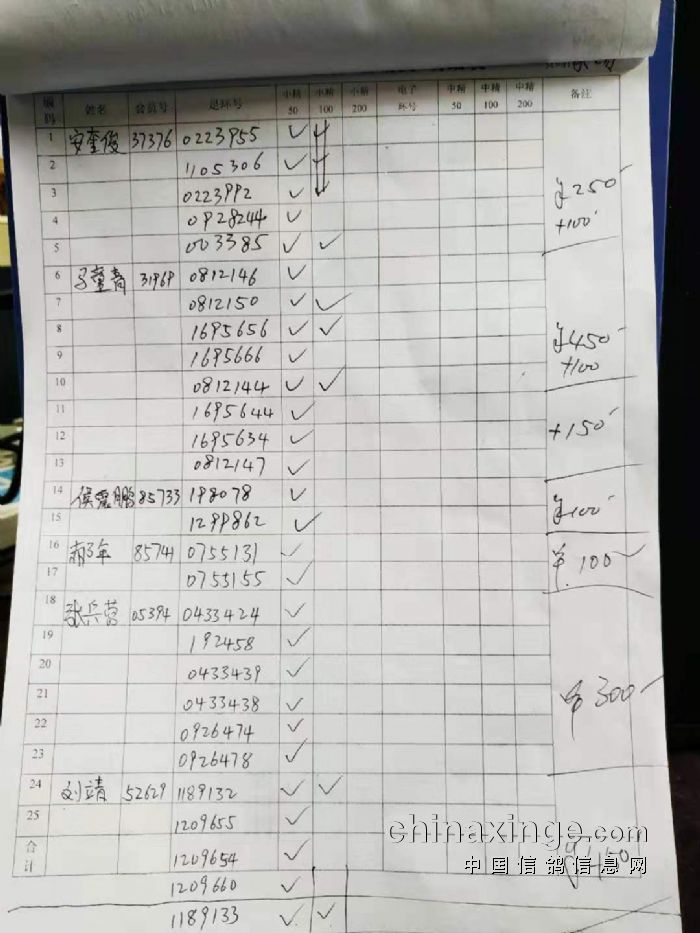 编码 姓名 会员号 足环号 小精50 小精100 小精200 电子环号 中精50 中精100 中精200 备注
1 安奎俊 37376 0223955 ✓ ✓
2 1105306 ✓ ✓
3 0223992 ✓ ✓
4 0928244 ✓
5 003385 ✓ ✓ ¥250 +100
6 31969 0812146 ✓
7 0812150 ✓ ✓
8 1695656 ✓ ✓
9 1695666 ✓ ¥450 +100
10 0812144 ✓ ✓
11 1695644 ✓
12 1695634 ✓ +150
13 0812147 ✓
14 侯震鹏 85733 198078 ✓
15 1299862 ✓ ¥100
16 85741 0755131 ✓
17 0755155 ✓ ¥100
18 张兵营 05394 0433424 ✓
19 192458 ✓
20 0433439 ✓
21 0433438 ✓ ¥300
22 0926474 ✓
23 0926478 ✓
24 刘靖 52629 1189132 ✓ ✓
25 1209655 ✓
合计 1209654 ✓
1209660 ✓
1189133 ✓ ✓
chinaxinge.com
中国信鸽信息网